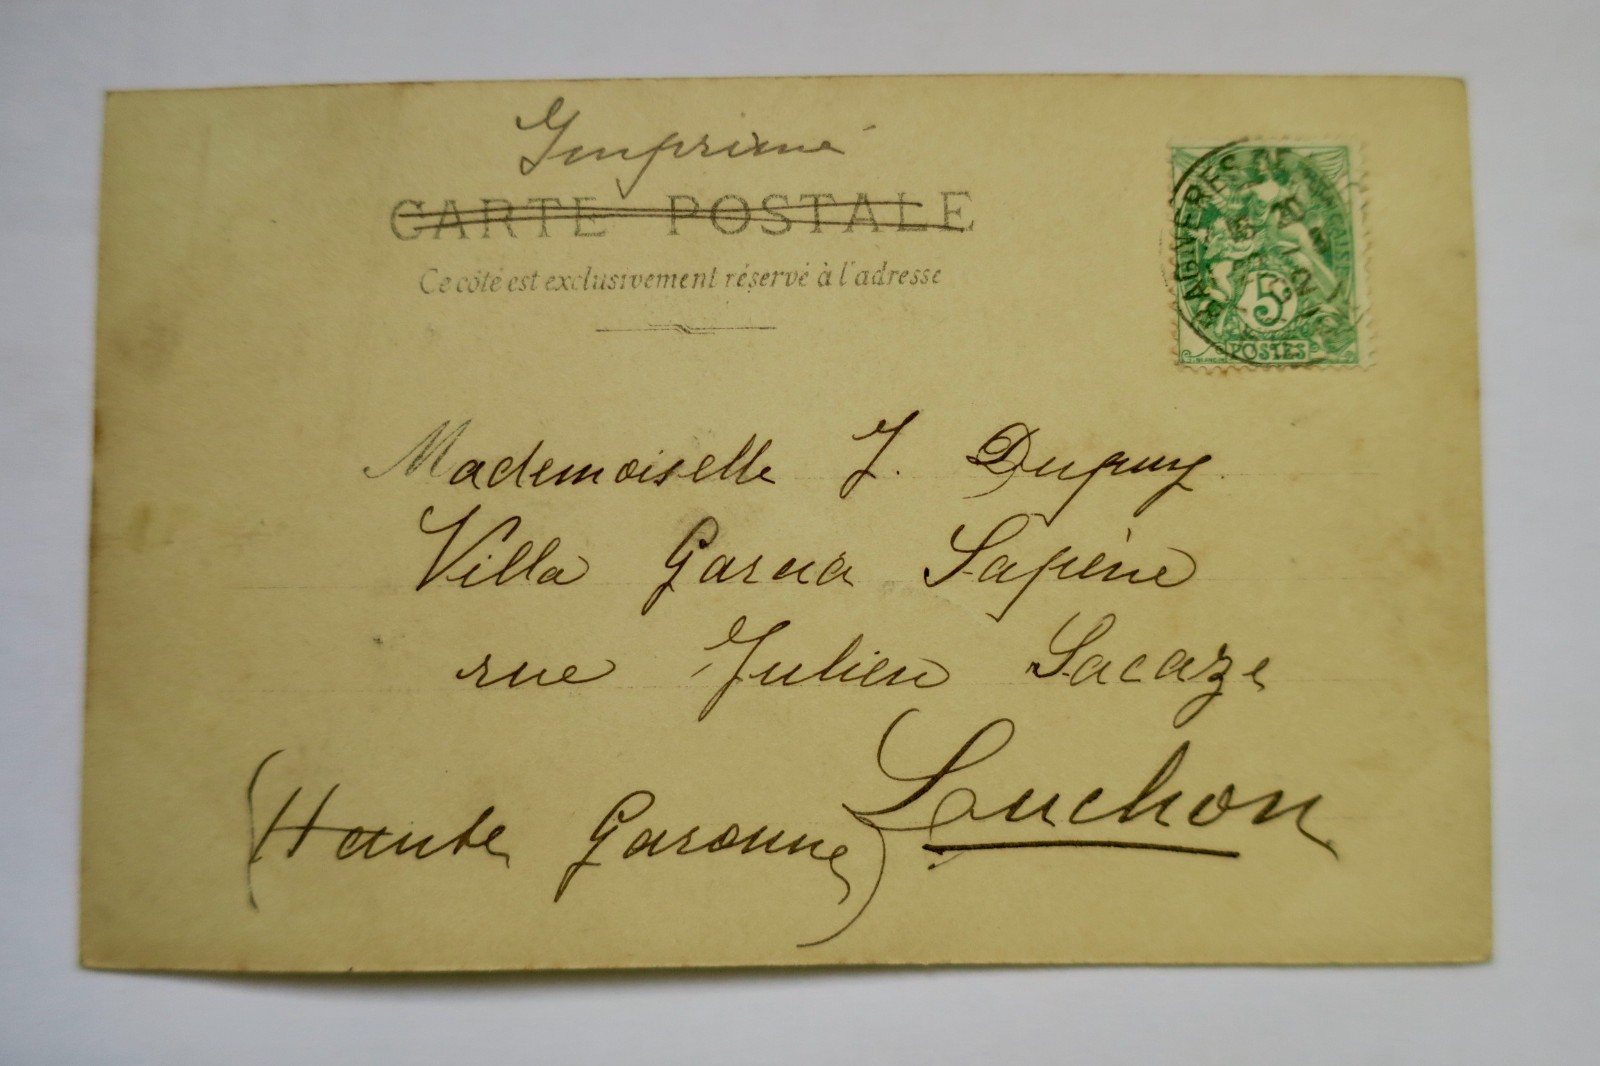 Imprimé
CARTE POSTALE
Ce côté est exclusivement réservé à l'adresse
BAGNERES
5
POSTES
Mademoiselle J. Dupuy.
Villa Garcia Lapène
rue Julien Sacaze
Luchon
(Haute Garonne)